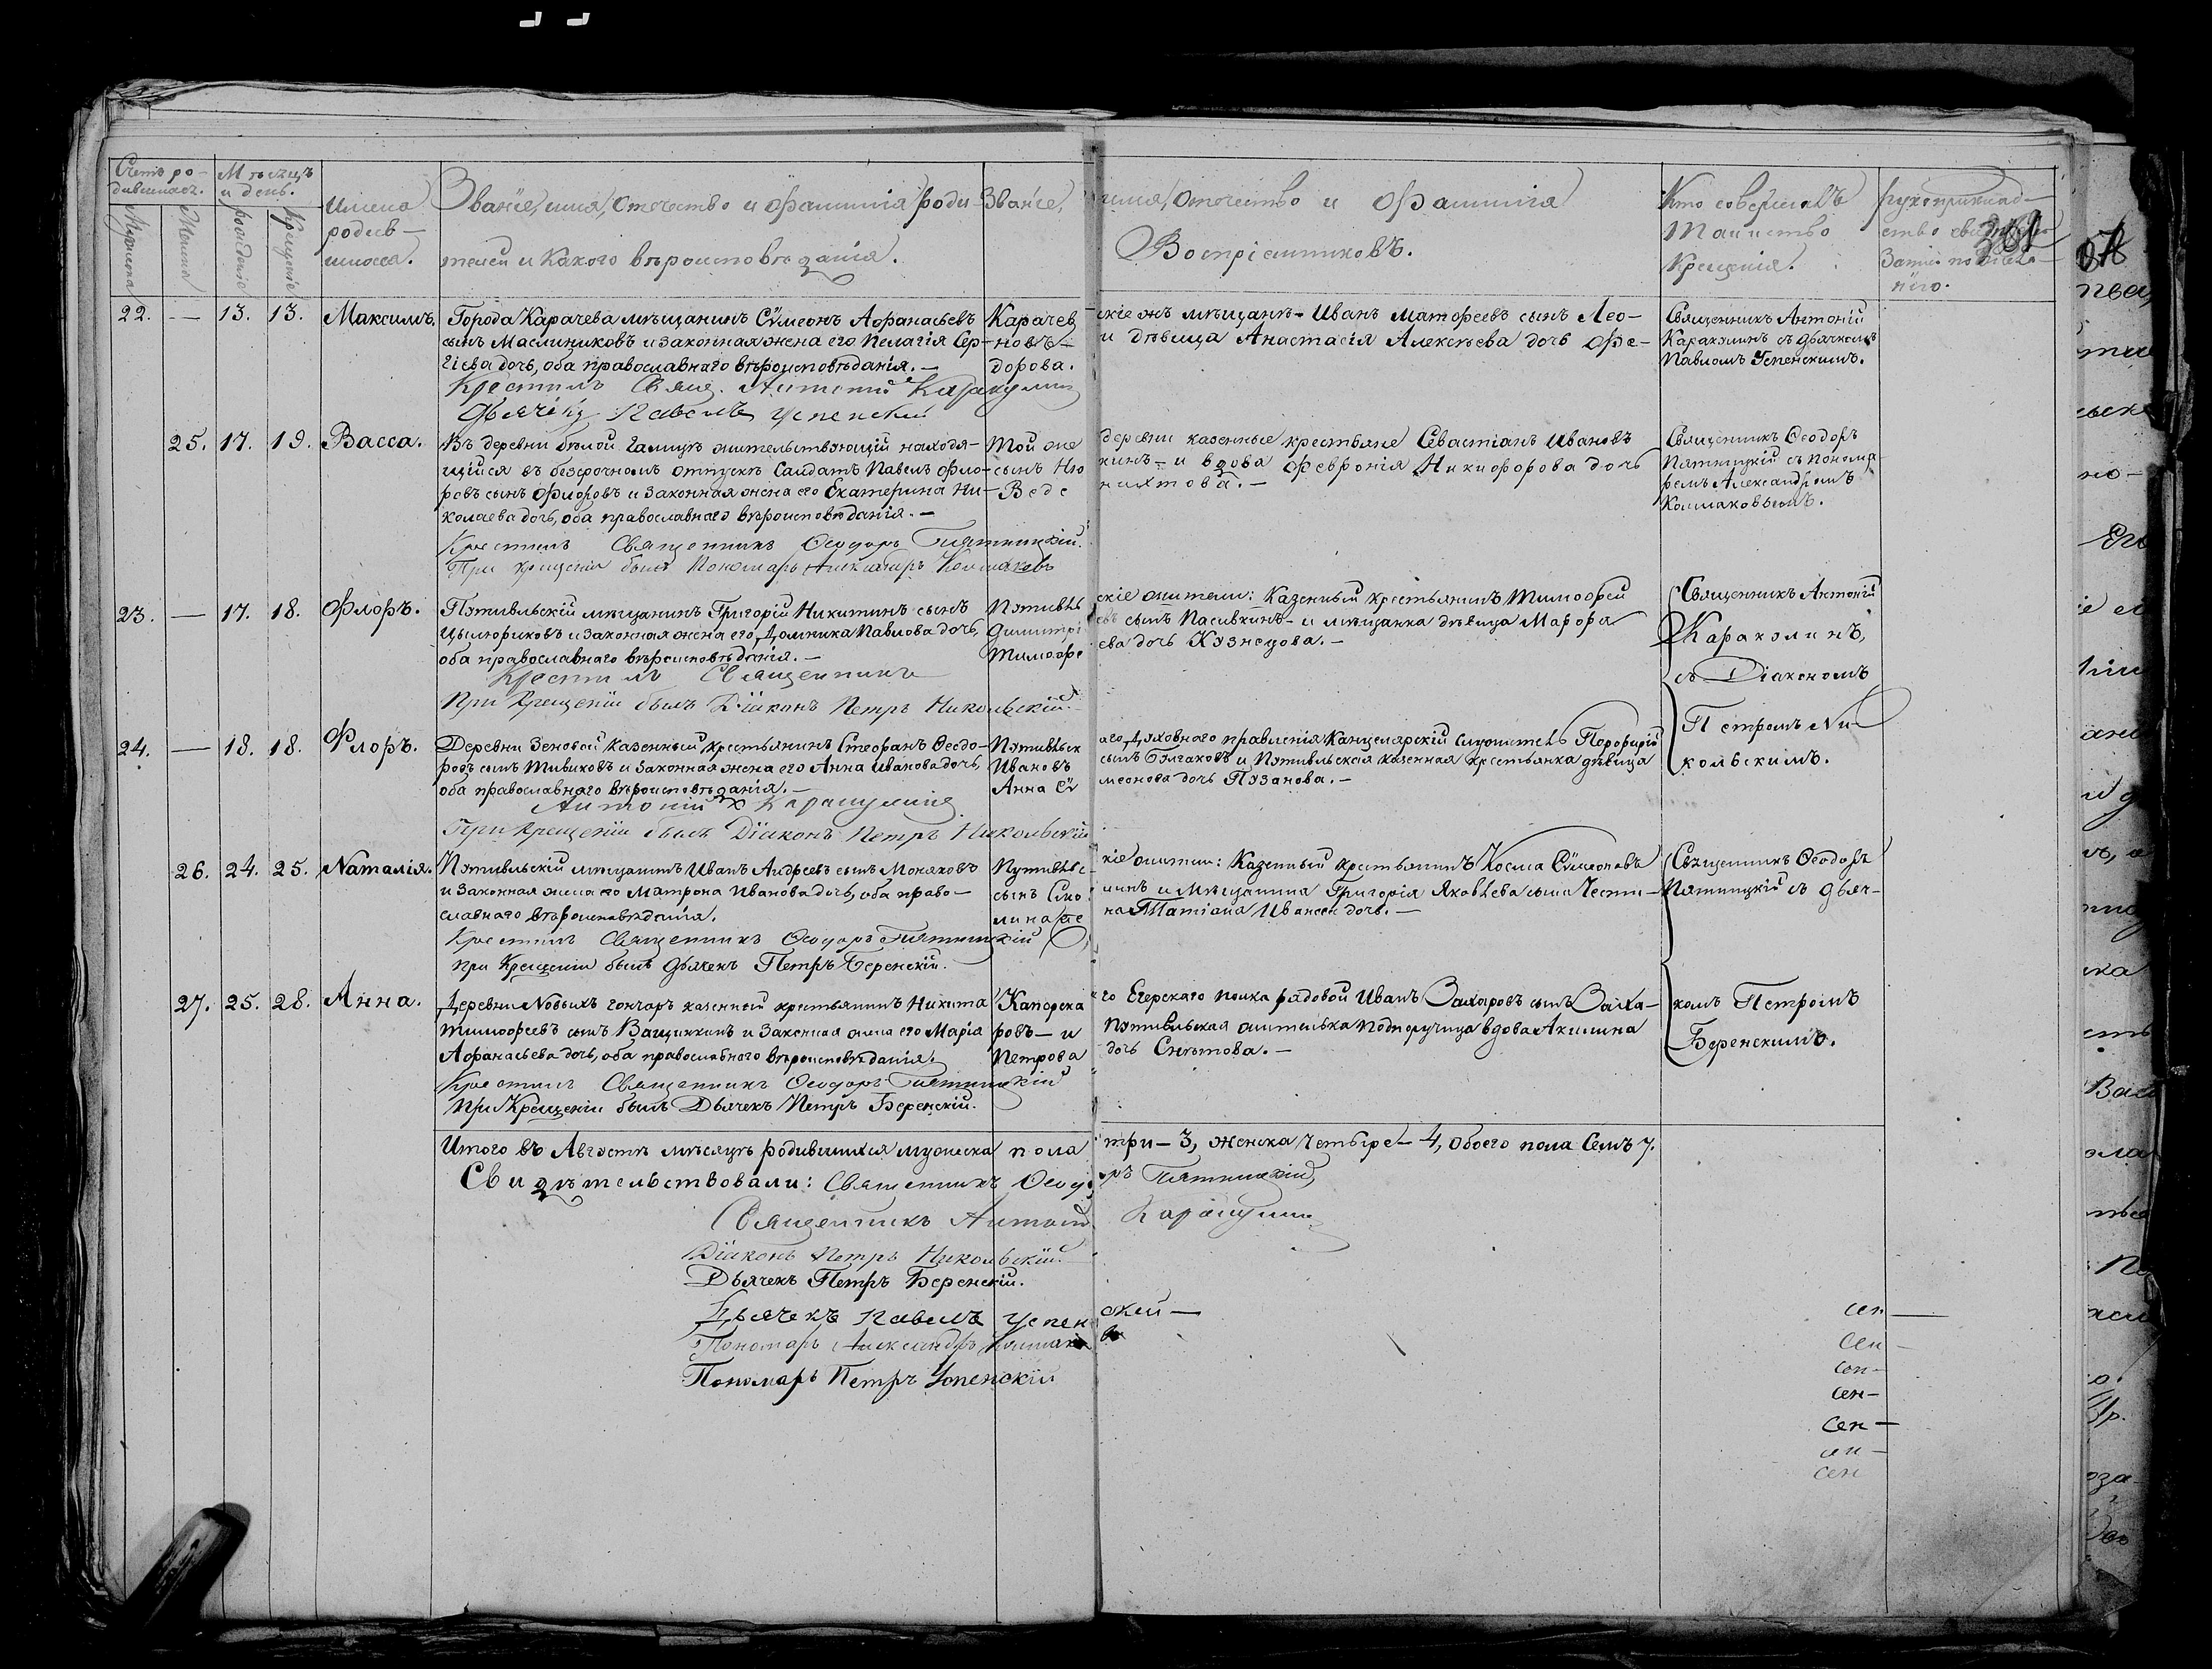 Счетъ ро-
дившихся.
Мѣсяцъ
и день.
Мужеска
Женска
рожденіе
Крещеніе
Имена
родив-
шихся.
Званіе, имя, отечество и фамилія роди-
телей и какого вѣроисповѣданія.
Званіе, имя, отечество и фамилія
Воспріемниковъ.
Кто совершалъ
Таинство
Крещенія.
рукоприклад-
ство
301
22. — 13. 13. Максимъ.
Города Карачева мѣщанинъ Сѷмеонъ Афанасьевъ
сынъ Маслиниковъ и законная жена его Пелагія Сер-
гіева дочь, оба православнаго вѣроисповѣданія. —
Карачевскіе жъ мѣщане - Иванъ Матфеевъ сынъ Лео-
новъ - и дѣвица Анастасія Алексѣева дочь Фе-
дорова.
Священникъ Антоній
Каракулинъ съ дьячкомъ
Павломъ Успенскимъ.
Крестилъ Свящ. Антоній Каракулин
Дьячекъ Павелъ Успенскій
25. 17. 19. Васса.
Въ деревни бѣлой Галицѣ жительствующій находя-
щійся въ безсрочномъ отпускѣ Салдатъ Павелъ Фло-
ровъ сынъ Флоровъ и законная жена его Екатерина Ни-
колаева дочь, оба православнаго вѣроисповѣданія. —
Той же деревни казенные крестьяне Севастіанъ Ивановъ
сынъ и вдова Февронія Никифорова дочь
Священникъ Ѳеодоръ
Пятницкій съ понома-
ремъ Александромъ
Колмаковымъ.
Крестилъ Священникъ Ѳеодоръ Пятницкій.
При крещеніи былъ Пономарь Александръ Колмаковъ
23. — 17. 18. Флоръ.
Путивльскій мѣщанинъ Григорій Никитинъ сынъ
Цылюриковъ и законная жена его Домника Павлова дочь,
оба православнаго вѣроисповѣданія. —
Путивльскіе жители: Казенный крестьянинъ Тимофей
сынъ Пасивкинъ - и мѣщанка дѣвица Марфа
Тимофеева дочь Кузнецова. —
Священникъ Антоній
Каракулинъ,
съ Діакономъ
Крестилъ Священникъ
При крещеніи былъ Діаконъ Петръ Никольскій.
24. — 18. 18. Флоръ.
Деревни Зеновой казенный крестьянинъ Стефанъ Ѳеодо-
ровъ сынъ Тивиковъ и законная жена его Анна Иванова дочь,
оба православнаго вѣроисповѣданія. —
Путивльскаго Духовнаго правленія Канцелярскій служитель Порфирій
Ивановъ сынъ Булгаковъ и Путивльская казенная крестьянка дѣвица
Анна Сѷмеонова дочь Пузанова. —
Петромъ Ни-
кольскимъ.
Антоній Каракулинъ
При крещеніи былъ Діаконъ Петръ Никольскій
26. 24. 25. Наталія.
Путивльскій мѣщанинъ Иванъ Андреевъ сынъ Моняковъ
и законная жена его Матрона Иванова дочь, оба право-
славнаго вѣроисповѣданія.
Путивльскіе жители: Казенный крестьянинъ Косма Сѷмеоновъ
сынъ и мѣщанина Григорія Яковлева сына
Татіана Иванова дочь. —
Священникъ Ѳеодоръ
Пятницкій съ дьяч-
Крестилъ Священникъ Ѳеодоръ Пятницкій
при Крещеніи былъ дьячекъ Петръ Беренскій.
27. 25. 28. Анна.
Деревни Новыхъ гончаръ казенный крестьянинъ Никита
Тимофеевъ сынъ Ващинкинъ и законная жена его Марія
Афанасьева дочь, оба православного вѣроисповѣданія.
Капорскаго Егерскаго полка рядовой Иванъ Захаровъ сынъ Заха-
ровъ — и Путивльская жителька подпоручица вдова Акилина
Петрова дочь Снытова. —
комъ Петромъ
Беренскимъ.
Крестилъ Священникъ Ѳеодоръ Пятницкій
При Крещеніи былъ Дьячекъ Петръ Беренскій.
Итого въ Августѣ мѣсяцѣ родившихся мужеска пола три - 3, женска четыре - 4, обоего пола Семъ 7.
Свидѣтельствовали: Священникъ Ѳеодоръ Пятницкій,
Священникъ Антоній Каракулин
Діаконъ Петръ Никольскій.
Дьячекъ Петръ Беренскій.
Дьячекъ Павелъ Успенской —
Пономарь Александръ Колмаковъ
Пономарь Петръ Успенскій
сен —
сен —
сен —
сен —
сен —
сен —
сен